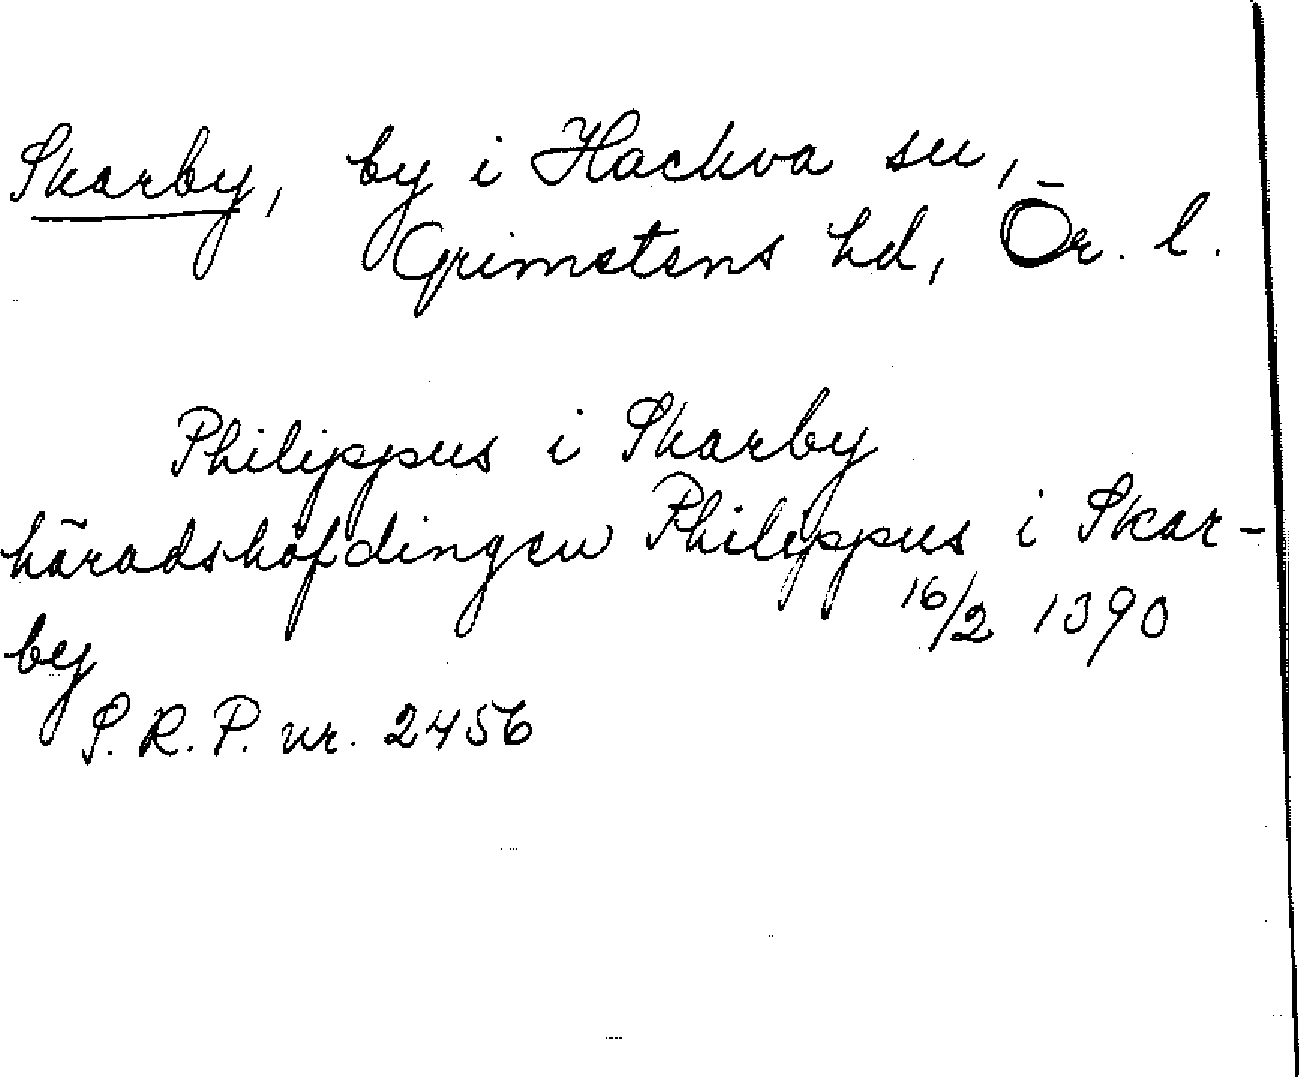 Skarby, by i Hackva sn,
Grimstens hd, Ör. l.
Philippus i Skarby
häradshöfdingen Philippus i Skar-
by 16/2 1390
S. R. P. nr. 2456